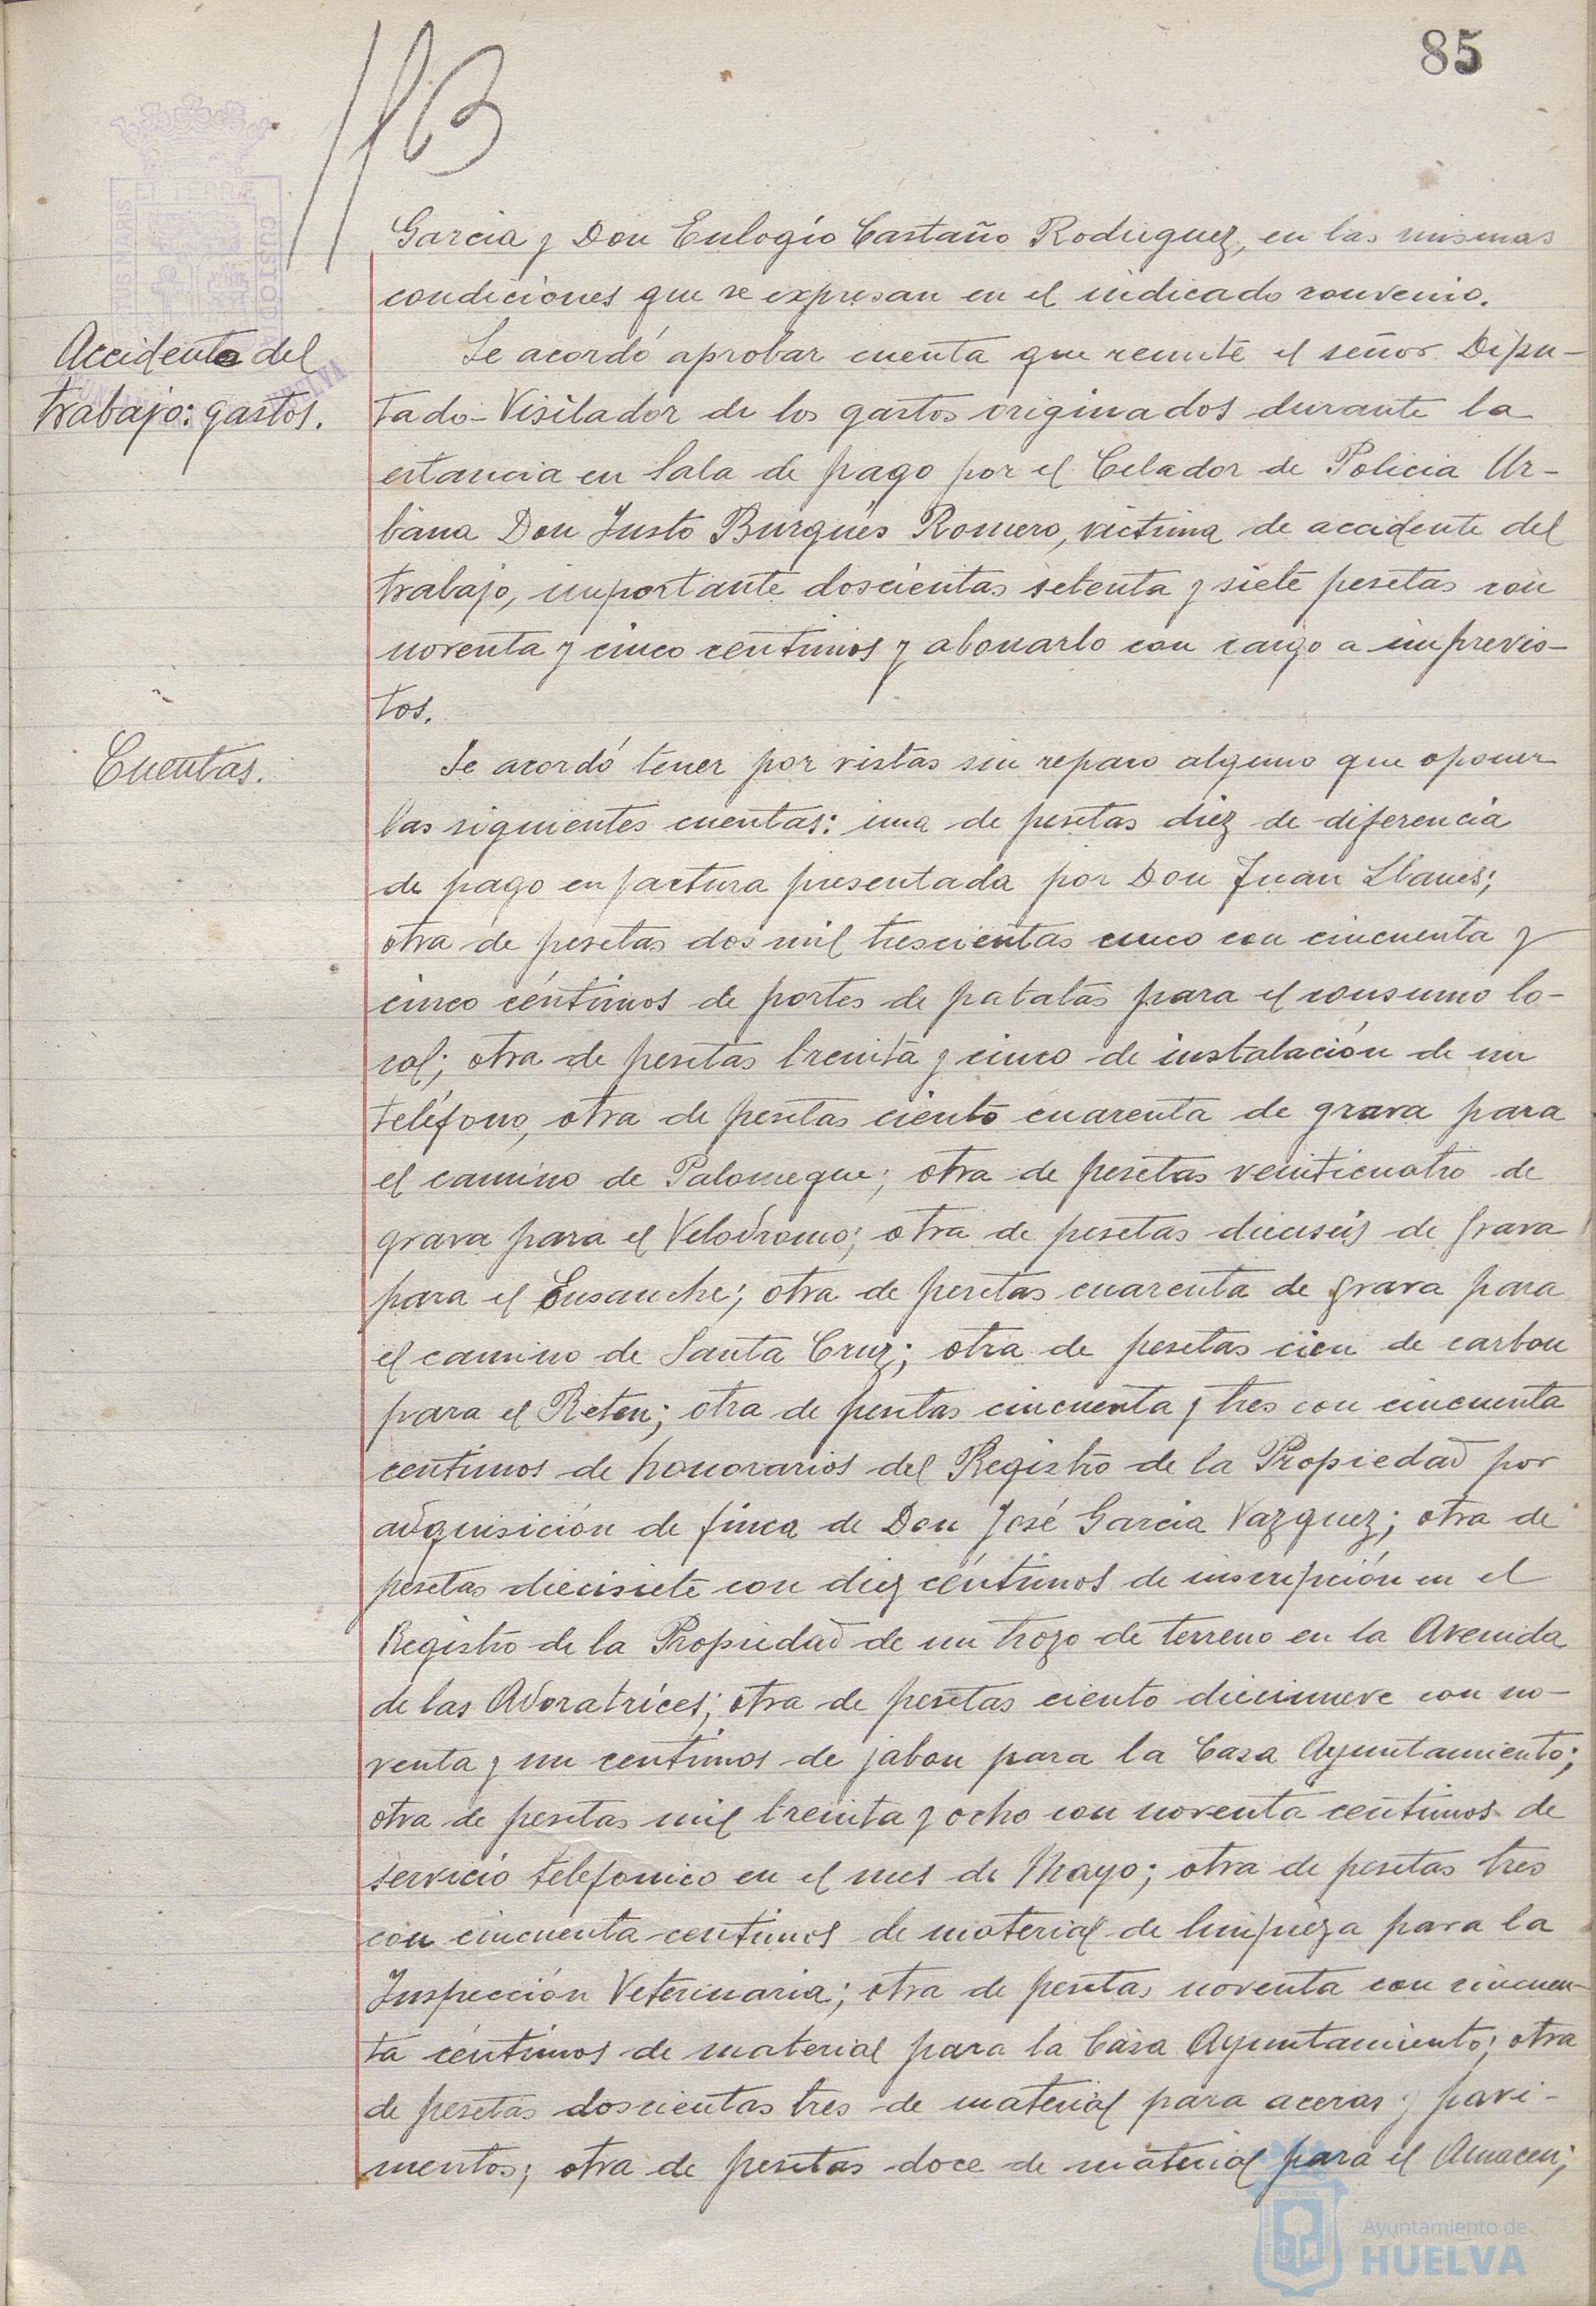 85
113
Garcia y Don Eulogio Castaño Rodriguez, en las mismas
condiciones que se expresan en el indicado convenio.
Accidente del
trabajo: gastos.
Se acordó aprobar cuenta que remite el señor Dipu-
tado-Visitador de los gastos originados durante la
estancia en Sala de pago por el Celador de Policia Ur-
bana Don Justo Burgues Romero, victima de accidente del
trabajo, importante doscientas setenta y siete pesetas con
noventa y cinco centimos y abonarlo con cargo a imprevis-
tos.
Cuentas.
Se acordó tener por vistas sin reparo alguno que oponer
las siguientes cuentas: una de pesetas diez de diferencia
de pago en factura presentada por Don Juan Llanes;
otra de pesetas dos mil trescientas cinco con cincuenta y
cinco céntimos de portes de patatas para el consumo lo-
cal; otra de pesetas treinta y cinco de instalación de un
teléfono, otra de pesetas ciento cuarenta de grava para
el camino de Palomeque; otra de pesetas veinticuatro de
grava para el Velodromo; otra de pesetas dieciseis de grava
para el Ensanche; otra de pesetas cuarenta de grava para
el camino de Santa Cruz; otra de pesetas cien de carbon
para el Reten; otra de pesetas cincuenta y tres con cincuenta
centimos de honorarios del Registro de la Propiedad por
adquisición de finca de Don José Garcia Vazquez; otra de
pesetas diecisiete con diez céntimos de inscripción en el
Registro de la Propiedad de un trozo de terreno en la Avenida
de las Adoratrices; otra de pesetas ciento diecinueve con no-
venta y un centimos de jabon para la Casa Ayuntamiento;
otra de pesetas mil treinta y ocho con noventa centimos de
servicio telefonico en el mes de Mayo; otra de pesetas tres
con cincuenta centimos de material de limpieza para la
Inspección Veterinaria; otra de pesetas noventa con cincuen-
ta céntimos de material para la Casa Ayuntamiento; otra
de pesetas doscientas tres de material para aceras y pavi-
mentos; otra de pesetas doce de material para el Almacen;
Ayuntamiento de
HUELVA